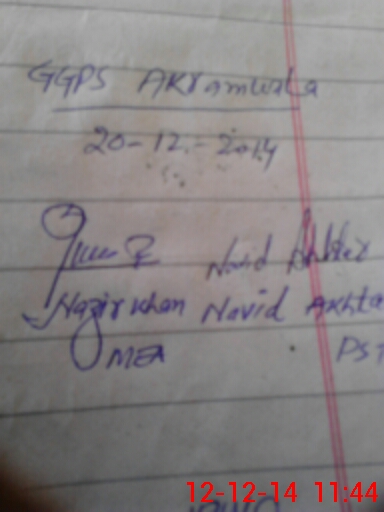 GGPS AKramwala
20-12-2014
Navid Akhter
Nazir Khan Navid Akhta
MEA PST
12-12-14 11:44